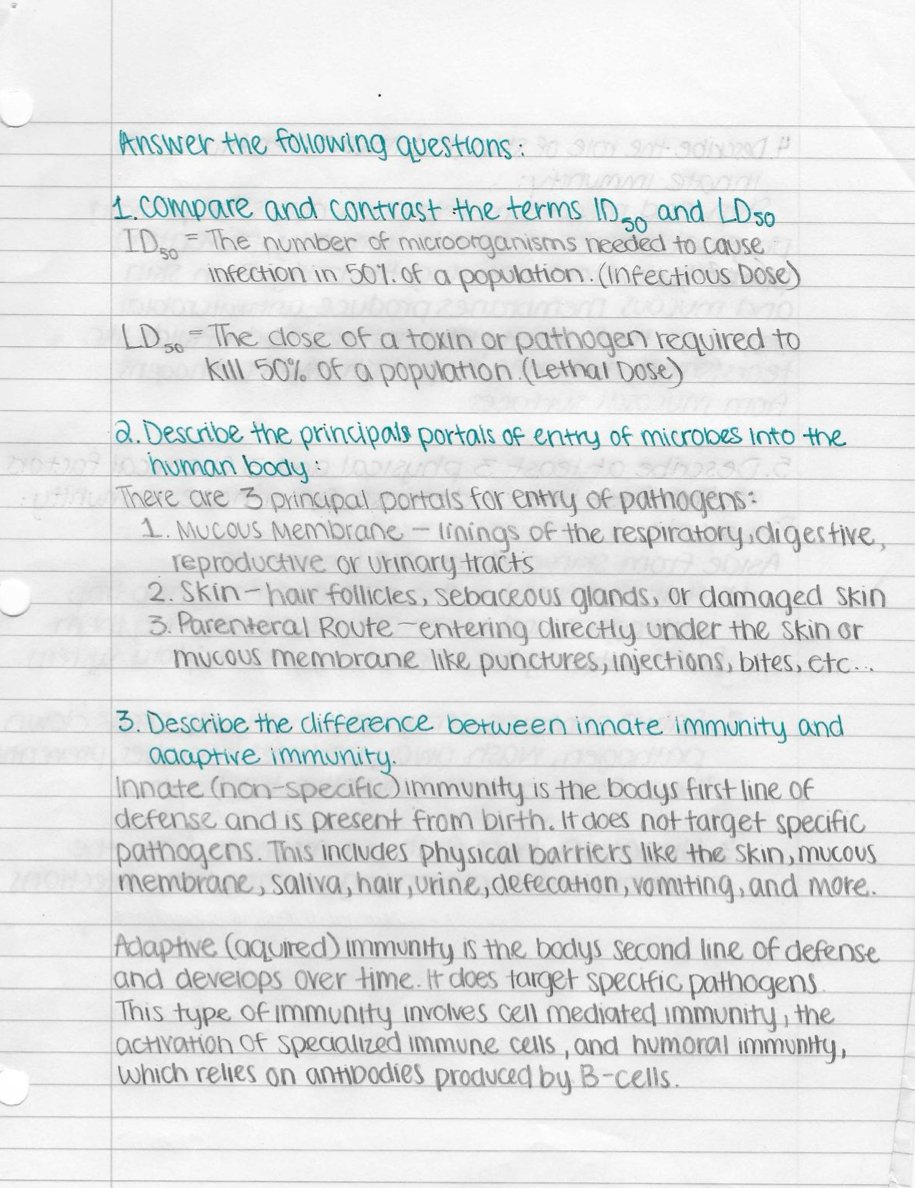 Answer the following questions:
1. Compare and contrast the terms ID50 and LD50
ID50 = The number of microorganisms needed to cause
infection in 50% of a population. (Infectious Dose)
LD50 = The dose of a toxin or pathogen required to
kill 50% of a population. (Lethal Dose)
2. Describe the principals portals of entry of microbes into the
human body:
There are 3 principal portals for entry of pathogens:
1. Mucous Membrane – linings of the respiratory, digestive,
reproductive or urinary tracts
2. Skin – hair follicles, sebaceous glands, or damaged skin
3. Parenteral Route – entering directly under the skin or
mucous membrane like punctures, injections, bites, etc...
3. Describe the difference between innate immunity and
adaptive immunity.
Innate (non-specific) immunity is the bodys first line of
defense and is present from birth. It does not target specific
pathogens. This includes physical barriers like the skin, mucous
membrane, saliva, hair, urine, defecation, vomiting, and more.
Adaptive (aquired) immunity is the bodys second line of defense
and develops over time. It does target specific pathogens.
This type of immunity involves cell mediated immunity, the
activation of specialized immune cells, and humoral immunity,
which relies on antibodies produced by B-cells.